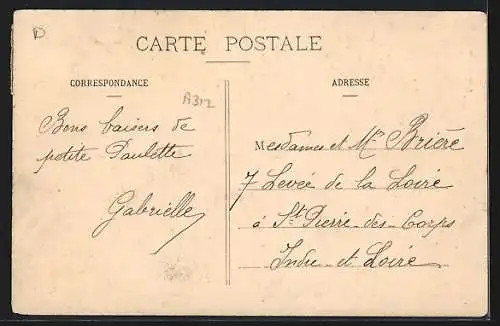 D
CARTE POSTALE
CORRESPONDANCE
ADRESSE
A312
Bons baisers de
petite Paulette
Gabrielle
Mesdames et Mr Brière
7 Levée de la Loire
à St Pierre-des-Corps
Indre-et-Loire